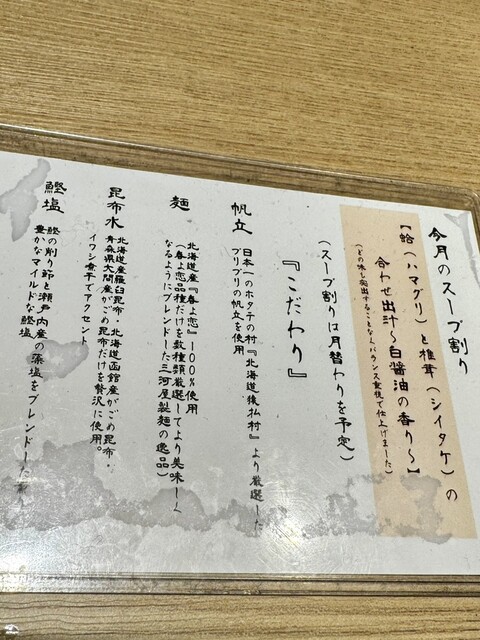 今月のスープ割り
【蛤(ハマグリ)と椎茸(シイタケ)の
合わせ出汁〜白醤油の香り〜】
(どの味も突出することなくバランス重視で仕上げました)
(スープ割りは月替わりを予定)
『こだわり』
帆立
日本一のホタテの村『北海道猿払村』より厳選した
プリプリの帆立を使用
麺
北海道産『春よ恋』100%使用
(春よ恋品種だけを数種類厳選してより美味しく
なるようにブレンドした三河屋製麺の逸品)
昆布水
北海道産羅臼昆布・北海道函館産がごめ昆布・
青森県大間産がごめ昆布だけを贅沢に使用。
イワシ煮干でアクセント
鰹塩
鰹の削り節と瀬戸内産の藻塩をブレンドした
豊かなマイルドな鰹塩